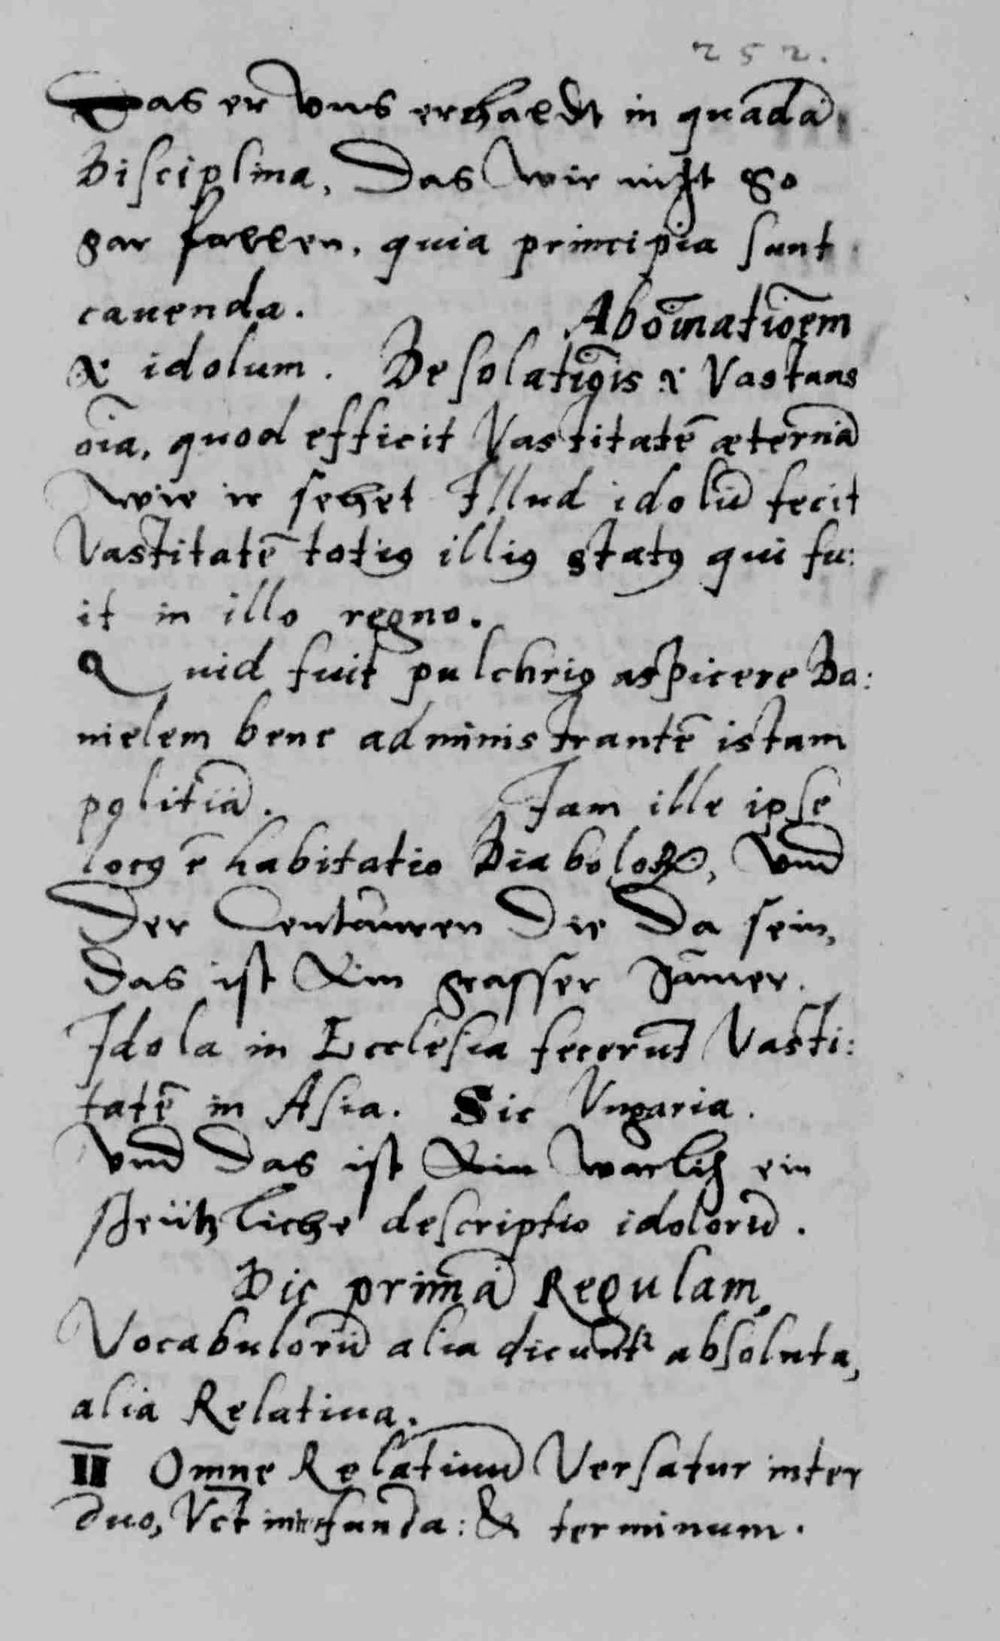 252.
Das er vns erhaldt in quadā
Disciplina, Das wir nicht so
gar fallen, quia principia sunt
cauenda. Abōinatiōem
& idolum. Desolatiōis & Vastans
oīa, quod efficit Vastitatē æternā
wie ir sehet Illud idolū fecit
Vastitatē totiꝰ illiꝰ statꝰ qui fu:
it in illo regno.
Quid fuit pulchriꝰ aspicere Da:
nielem bene administrantē istam
politiā. Jam ille ipse
locꝰ ē habitatio Diaboloꝝ, vnd
Der Centauren die da sein,
das ist ein grosser Jāmer.
Idola in Ecclesia fecerūt Vasti:
tatē in Asia. Sic Vngaria.
vnd das ist ein warlich ein
schützliche descriptio idolorū.
Dic primā Regulam,
Vocabulorū alia dicunt᷑ absoluta,
alia Relatiua.
II Omne Relatiuū Versatur inter
duo, Vet funda: & terminum.